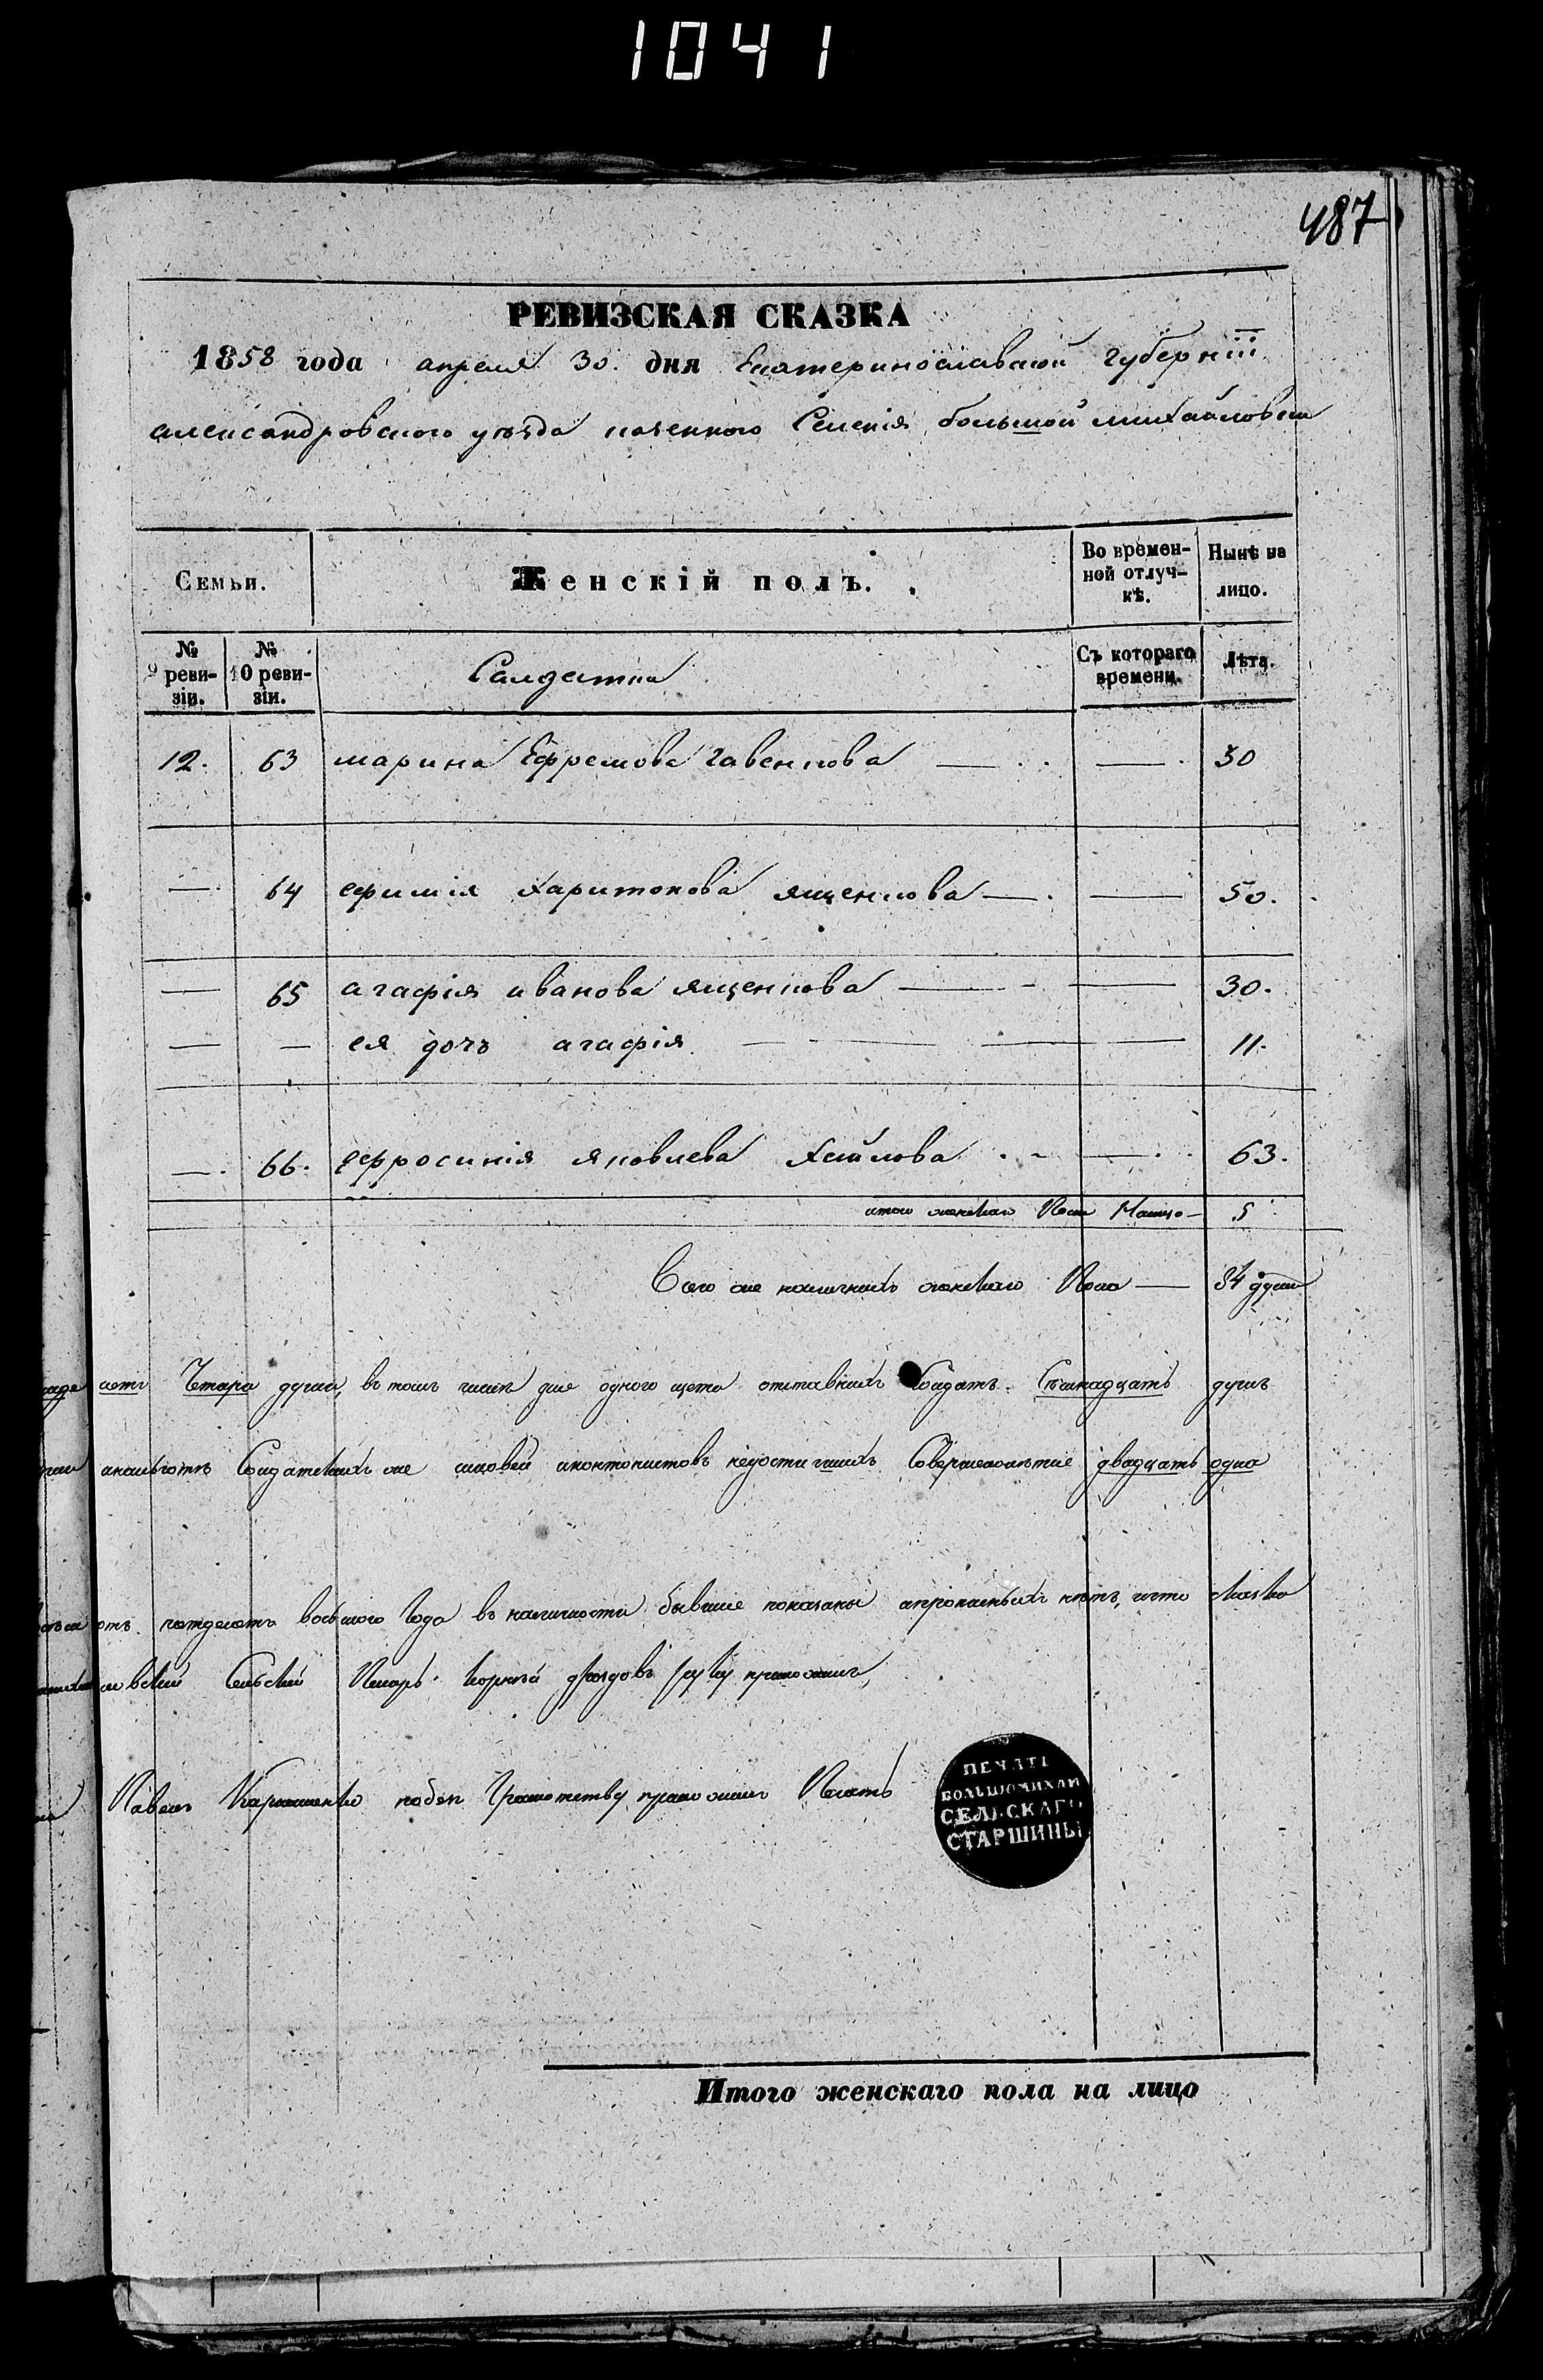 1041
487
РЕВИЗСКАЯ СКАЗКА
1858 года апреля 30. дня Екатеринославской губерніи
александровского уѣзда казенного Селенія большой михайловки
Семьи.
Женскій полъ.
Во времен-
ной отлуч-
кѣ.
Нынѣ на
лицо.
№
9 реви-
зіи.
№
10 реви-
зіи.
Салдатки
Съ котораго
времени.
Лѣта.
12. 63 марина Ефремова Гавенкова — — 30
— 64 ефимія Харитонова ященкова — — 50.
— 65 агафія иванова ященкова — — 30.
— — ея дочъ агафія — — 11.
— 66. ефросинія яковлева — 63.
итого женскаго Пола Налицо — 5
Всего же наличнихъ женскаго Пола — 84 души
Четыри души, въ томъ числѣ одного отставнихъ Солдатъ. Сѣмнадцать душъ
Солдатскихъ же синовей икантонистовъ недостигшихъ Совершенолѣтіе двадцать одна
восьмого Года въ наличности бывшіе показаны нѣтъ, что
Сельскій Писарь Корнѣй руку приложилъ,
Павелъ приложилъ Печать
ПЕЧАТЬ
БОЛЬШОМИХАЙ
СЕЛЬСКАГО
СТАРШИНЫ
Итого женскаго пола на лицо